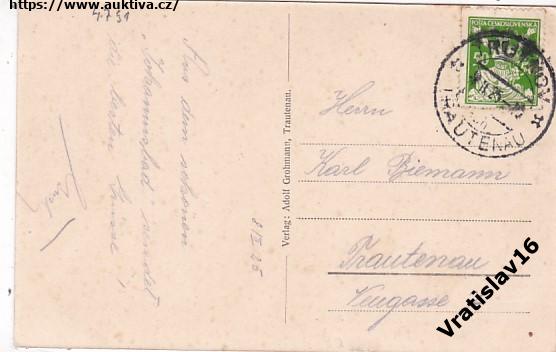 https://www.auktiva.cz/
4.7 51
Aus dem schönen
"Johannisbad" sendet
die besten Grüsse,
8/IX 25
Verlag: Adolf Grohmann, Trautenau.
POŠTA ČESKOSLOVENSKÁ
TRUTNOV
TRAUTENAU
Herrn
Karl Biemann
Trautenau
Neugasse
Vratislav16